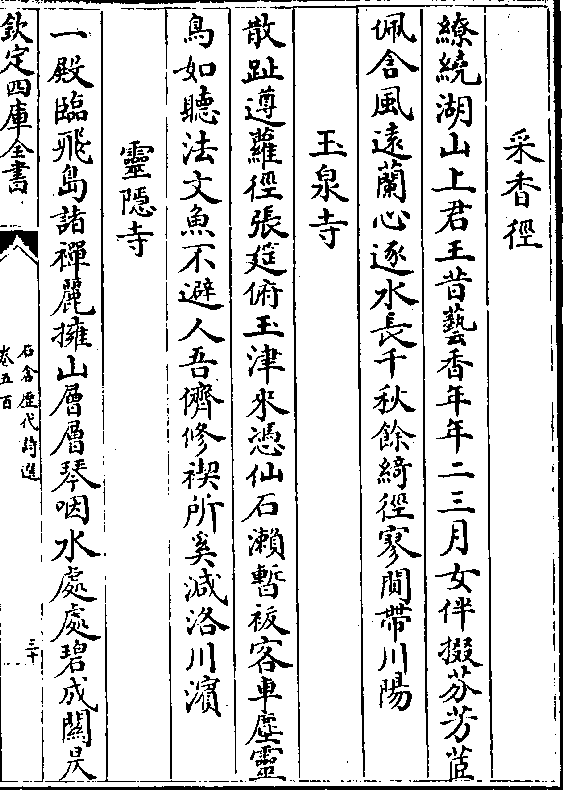 采香徑
繚繞湖山上君王昔藝香年年二三月女伴掇芬芳茝
佩含風遠蘭心逐水長千秋餘綺徑寥閴帶川陽
玉泉寺
散趾遵蘿徑張筵俯玉津來憑仙石瀨暫祓客車塵靈
鳥如聽法文魚不避人吾儕修禊所奚減洛川濱
靈隱寺
一殿臨飛島諸禪麗擁山層層琴咽水處處碧成關昃
欽定四庫全書
石倉歷代詩選
卷五百
三十